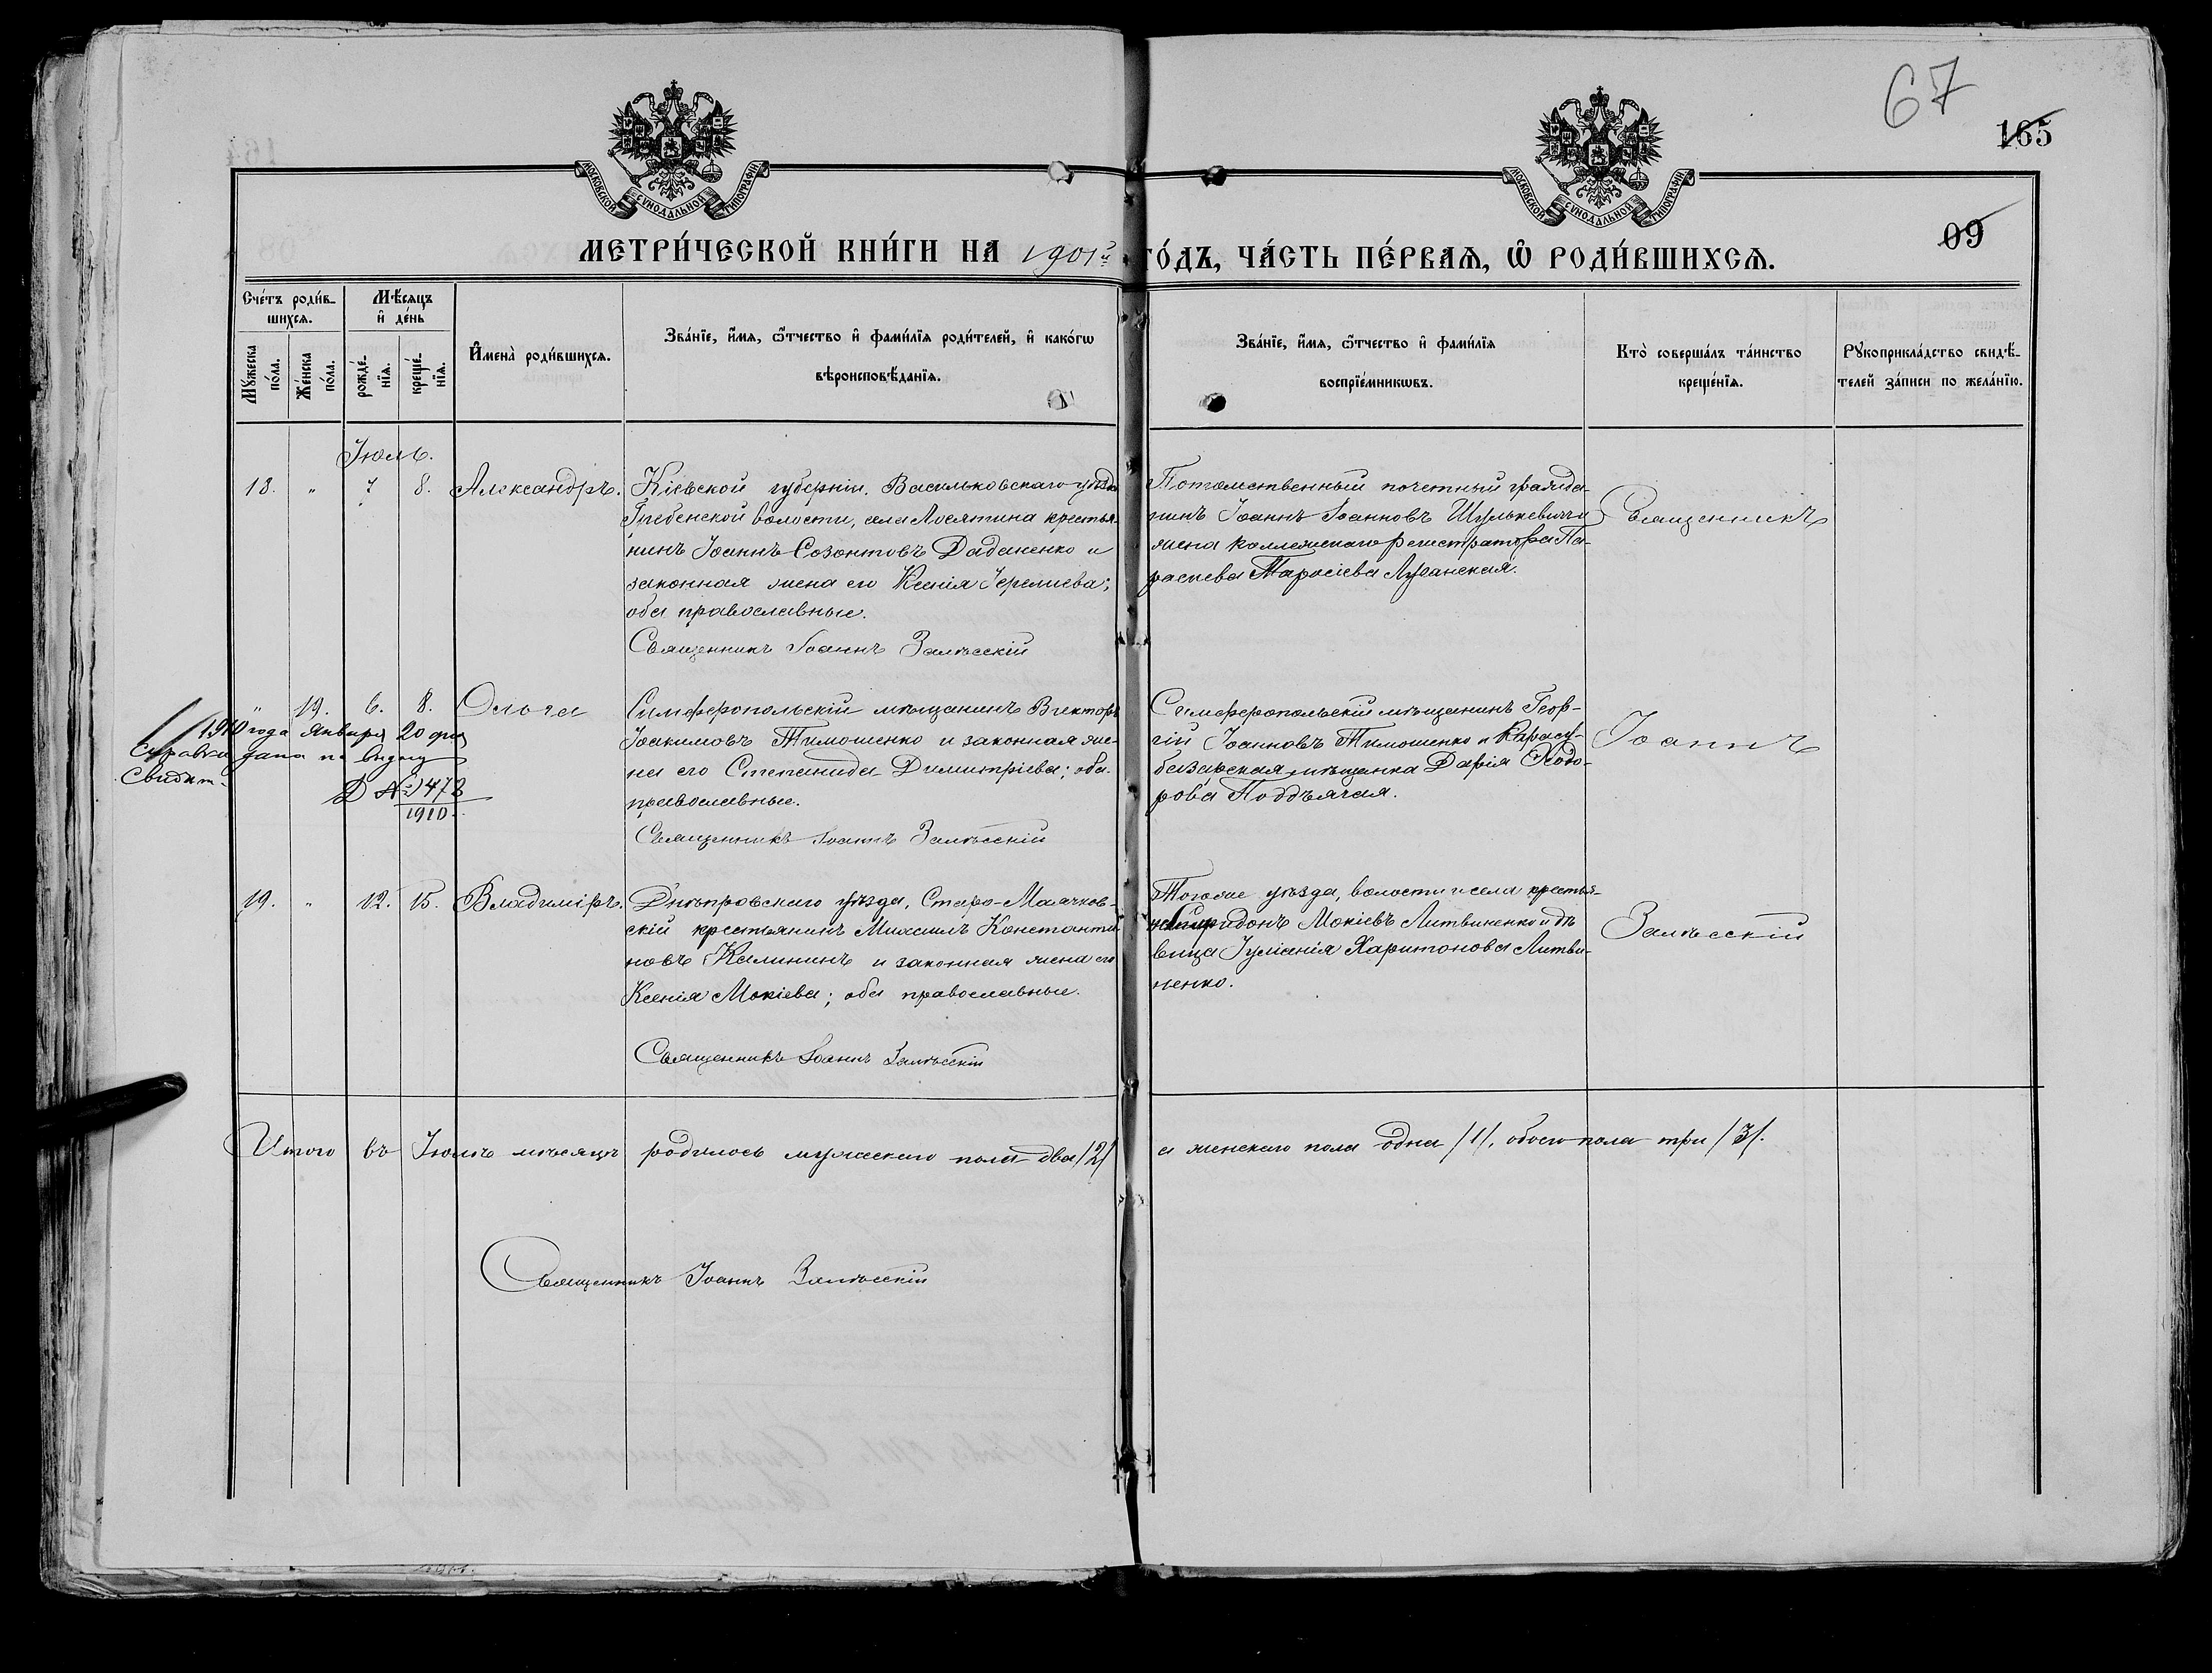 67
165
09
МОСКОВСКОЙ СѴНОДАЛЬНОЙ ТИПОГРАФІИ
МОСКОВСКОЙ СѴНОДАЛЬНОЙ ТИПОГРАФІИ
МЕТРИ́ЧЕСКОЙ КНИ́ГИ НА 1901й ГО́ДЪ, ЧА́СТЬ ПЕ́РВАѦ, Ѡ҆ РОДИ́ВШИХСѦ.
Сче́тъ роди́в-
шихсѧ.
Мꙋ́жеска по́ла.
Же́нска по́ла.
Мѣ́сѧцъ
и҆ де́нь
рожде́-нїѧ.
креще́-нїѧ.
И҆мена̀ роди́вшихсѧ.
Зва́нїе, и҆́мѧ, ѻ҆́тчество и҆ фами́лїѧ роди́телей, и҆ како́гѡ
вѣроисповѣ́данїѧ.
Зва́нїе, и҆́мѧ, ѻ҆́тчество и҆ фами́лїѧ
воспрїе́мникѡвъ.
Кто̀ соверша́лъ та́инство
креще́нїѧ.
Рꙋкоприкла́дство свидѣ́-
телей за́писи по жела́нїю.
Іюль.
18. " 7 8. Александръ.
Кіевской губерніи, Васильковскаго уѣзда
Гребенской волости, села Лосятина крестья-
нинъ Іоаннъ Созонтовъ Даданенко и
законная жена его Ксенія Іереміева;
оба православные.
Священникъ Іоаннъ Залѣсскій
Потомственный почетный гражда-
нинъ Іоаннъ Іоанновъ Шулькевичъ и
жена коллежскаго регистратора Па-
раскева Тарасіева Луганская.
Священникъ
" 19. 6. 8. Ольга
1910 года Января 20 дня
Справка дана по виду
Свидѣт.
Д №1478
1910.
Симферопольскій мѣщанинъ Викторъ
Іоакимовъ Тимошенко и законная же-
на его Степанида Димитріева; оба
православные.
Священникъ Іоаннъ Залѣсскій
Симферопольскій мѣщанинъ Геор-
гій Іоанновъ Тимошенко и Карасу-
базарская мѣщанка Дарія Ѳедо-
рова Поддъячая.
Іоаннъ
19. " 12. 15. Владиміръ.
Днѣпровскаго уѣзда, Старо-Маячков-
скій крестьянинъ Михаилъ Константи-
новъ Калининъ и законная жена его
Ксенія Мокіева; оба православные.
Священникъ Іоаннъ Залѣсскій
Того же уѣзда, волости и села крестья-
нинъ Спиридонъ Мокіевъ Литвиненко и дѣ-
вица Іуліанія Харитонова Литви-
ненко.
Залѣсскій
Итого въ Іюлѣ мѣсяцѣ родилось мужескаго пола два /2/ а женскаго пола одна /1/, обоего пола три /3/.
Священникъ Іоаннъ Залѣсскій